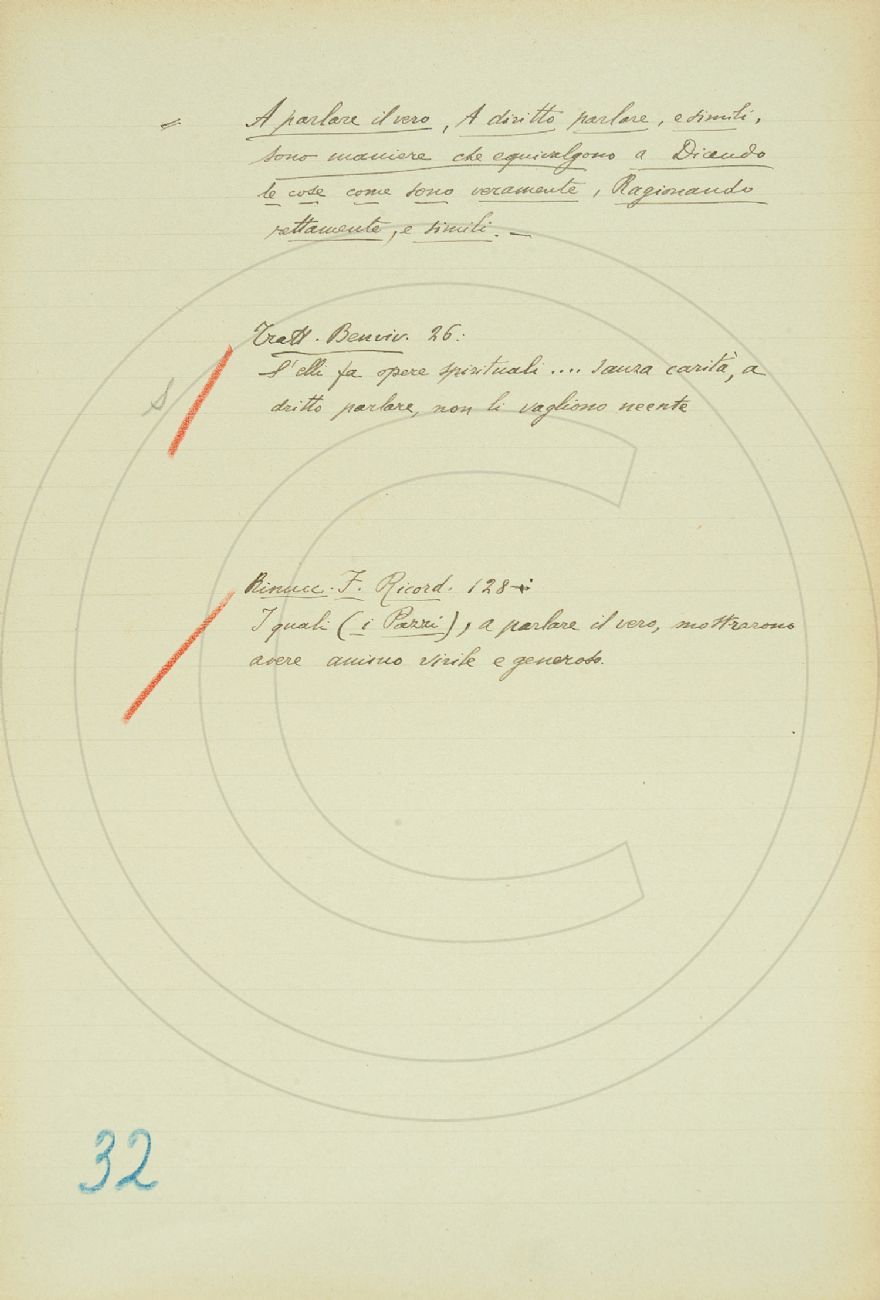 = A parlare il vero, A diritto parlare, e simili,
sono maniere che equivalgono a Dicendo
le cose come sono veramente, Ragionando
rettamente, e simili. —
Tratt. Benviv. 26:
S'elli fa opere spirituali .... sanza carità, a
dritto parlare, non li vagliono neente
S
Rinucc. F. Ricord. 128:
I quali (i Pazzi), a parlare il vero, mostrarono
avere animo virile e generoso.
32